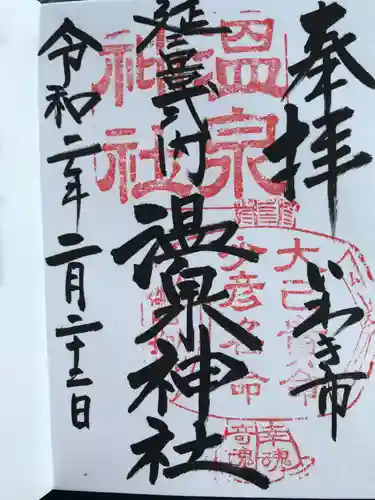 奉拝
いわき市
延喜式内
温泉神社
令和二年二月二十二日
温泉
神社
大己貴命
少彦名命
幸魂
奇魂